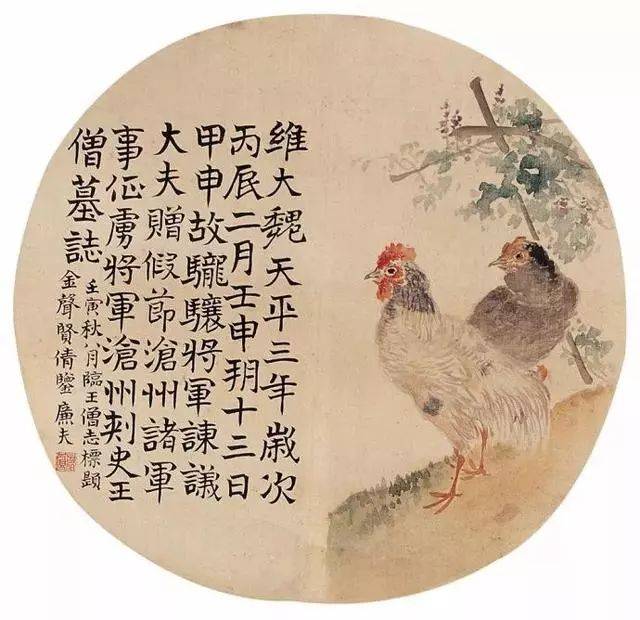 維大魏天平三年歲次
丙辰二月壬申朔十三日
甲申故驪驤將軍諫議
大夫贈假節滄州諸軍
事征虜將軍滄州刺史王
僧墓誌
壬寅秋八月臨王僧志標題
金聲賢倩鑒 廉夫